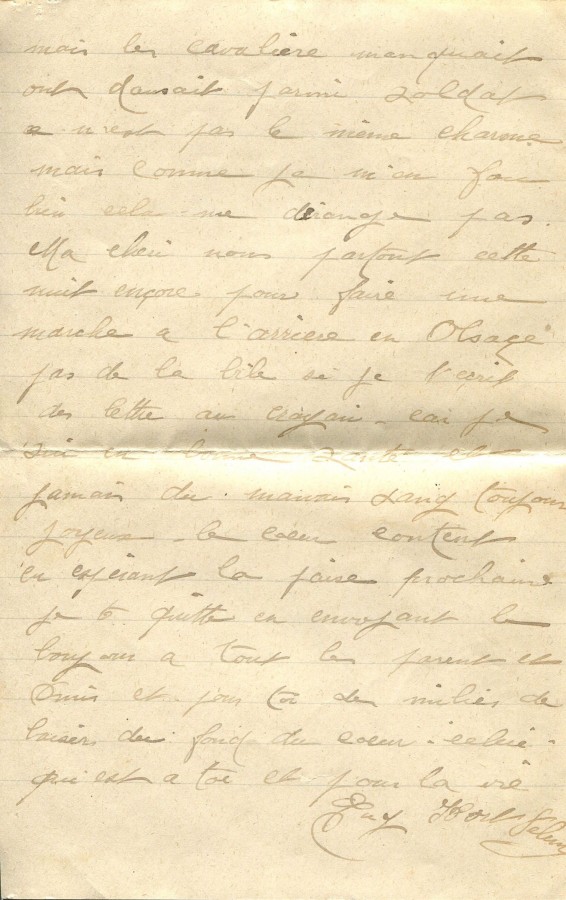 mais les cavalière manquait
ont dansait parmi soldat
n'est pas le même charme
mais comme je m'en fou
bien cela me dérange pas.
Ma cheri nous partont cette
nuit encore pour faire une
marche a l'arriere en Olsage
pas de la bile si je t'ecris
des lettre au crayon car je
suis en bonne santé et
jamais du mauvais sang toujour
joyeux le coeur content
en espérant la paise prochaine
je te quitte en envoyant le
bonjour a tout les parent et
Amis et pour toi des milier de
baisers du fond du coeur celui
qui est a toi et pour la vie